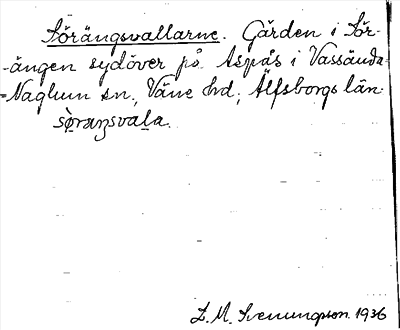 Sörängsvallarne. Gärden i Sör-
-ängen sydöver på Aspås i Vassända-
-Naglum sn., Väne hd., Älfsborgs län.
søraŋsvala.
L. M. Svenungsson. 1936